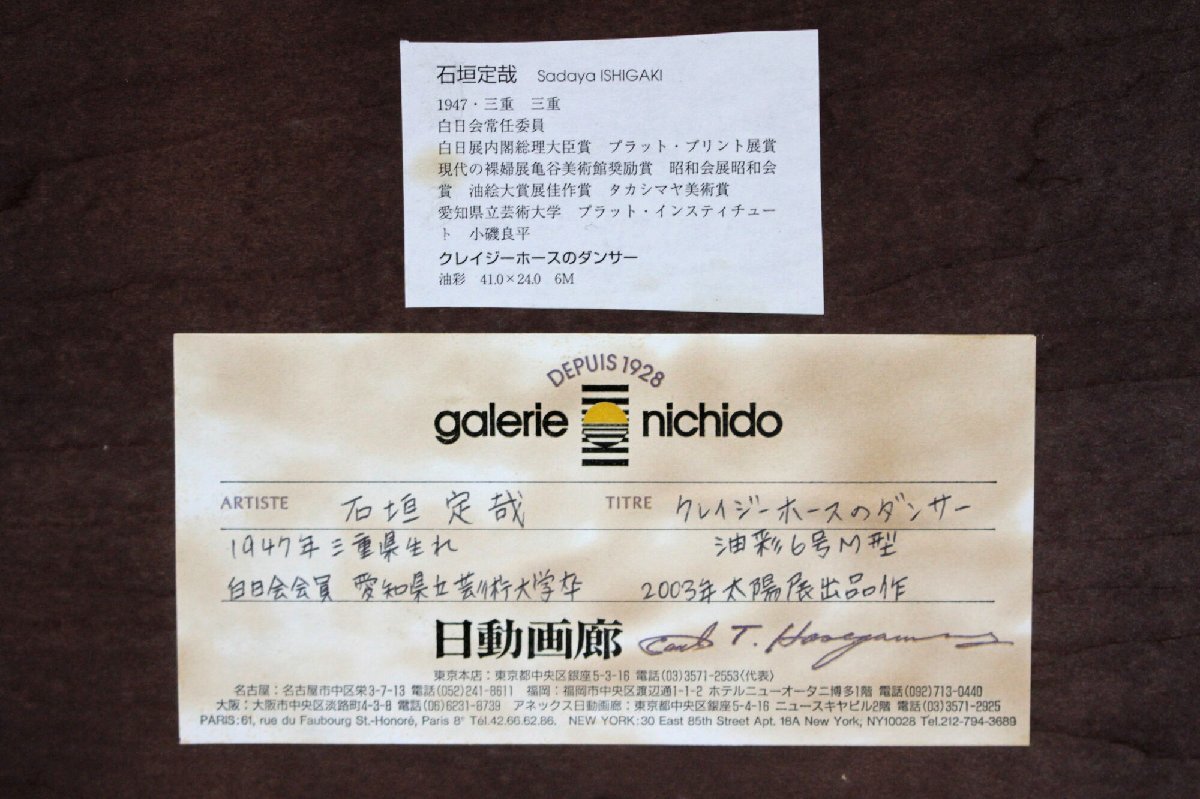 石垣定哉 Sadaya ISHIGAKI
1947・三重 三重
白日会常任委員
白日展内閣総理大臣賞 プラット・プリント展賞
現代の裸婦展亀谷美術館奨励賞 昭和会展昭和会
賞 油絵大賞展佳作賞 タカシマヤ美術賞
愛知県立芸術大学 プラット・インスティチュー
ト 小磯良平
クレイジーホースのダンサー
油彩 41.0×24.0 6M
DEPUIS 1928
galerie nichido
ARTISTE 石垣定哉 TITRE クレイジーホースのダンサー
1947年三重県生れ 油彩6号M型
白日会会員 愛知県立芸術大学卒 2003年太陽展出品作
日動画廊 T. Hasegawa
東京本店：東京都中央区銀座5-3-16 電話(03)3571-2553〈代表〉
名古屋：名古屋市中区栄3-7-13 電話(052)241-8611 福岡：福岡市中央区渡辺通1-1-2 ホテルニューオータニ博多1階 電話(092)713-0440
大阪：大阪市中央区淡路町4-3-8 電話(06)6231-8739 アネックス日動画廊：東京都中央区銀座5-4-16 ニュースキヤビル2階 電話(03)3571-2925
PARIS:61, rue du Faubourg St.-Honoré, Paris 8° Tél.42.66.62.86. NEW YORK:30 East 85th Street Apt. 16A New York, NY10028 Tel.212-794-3689